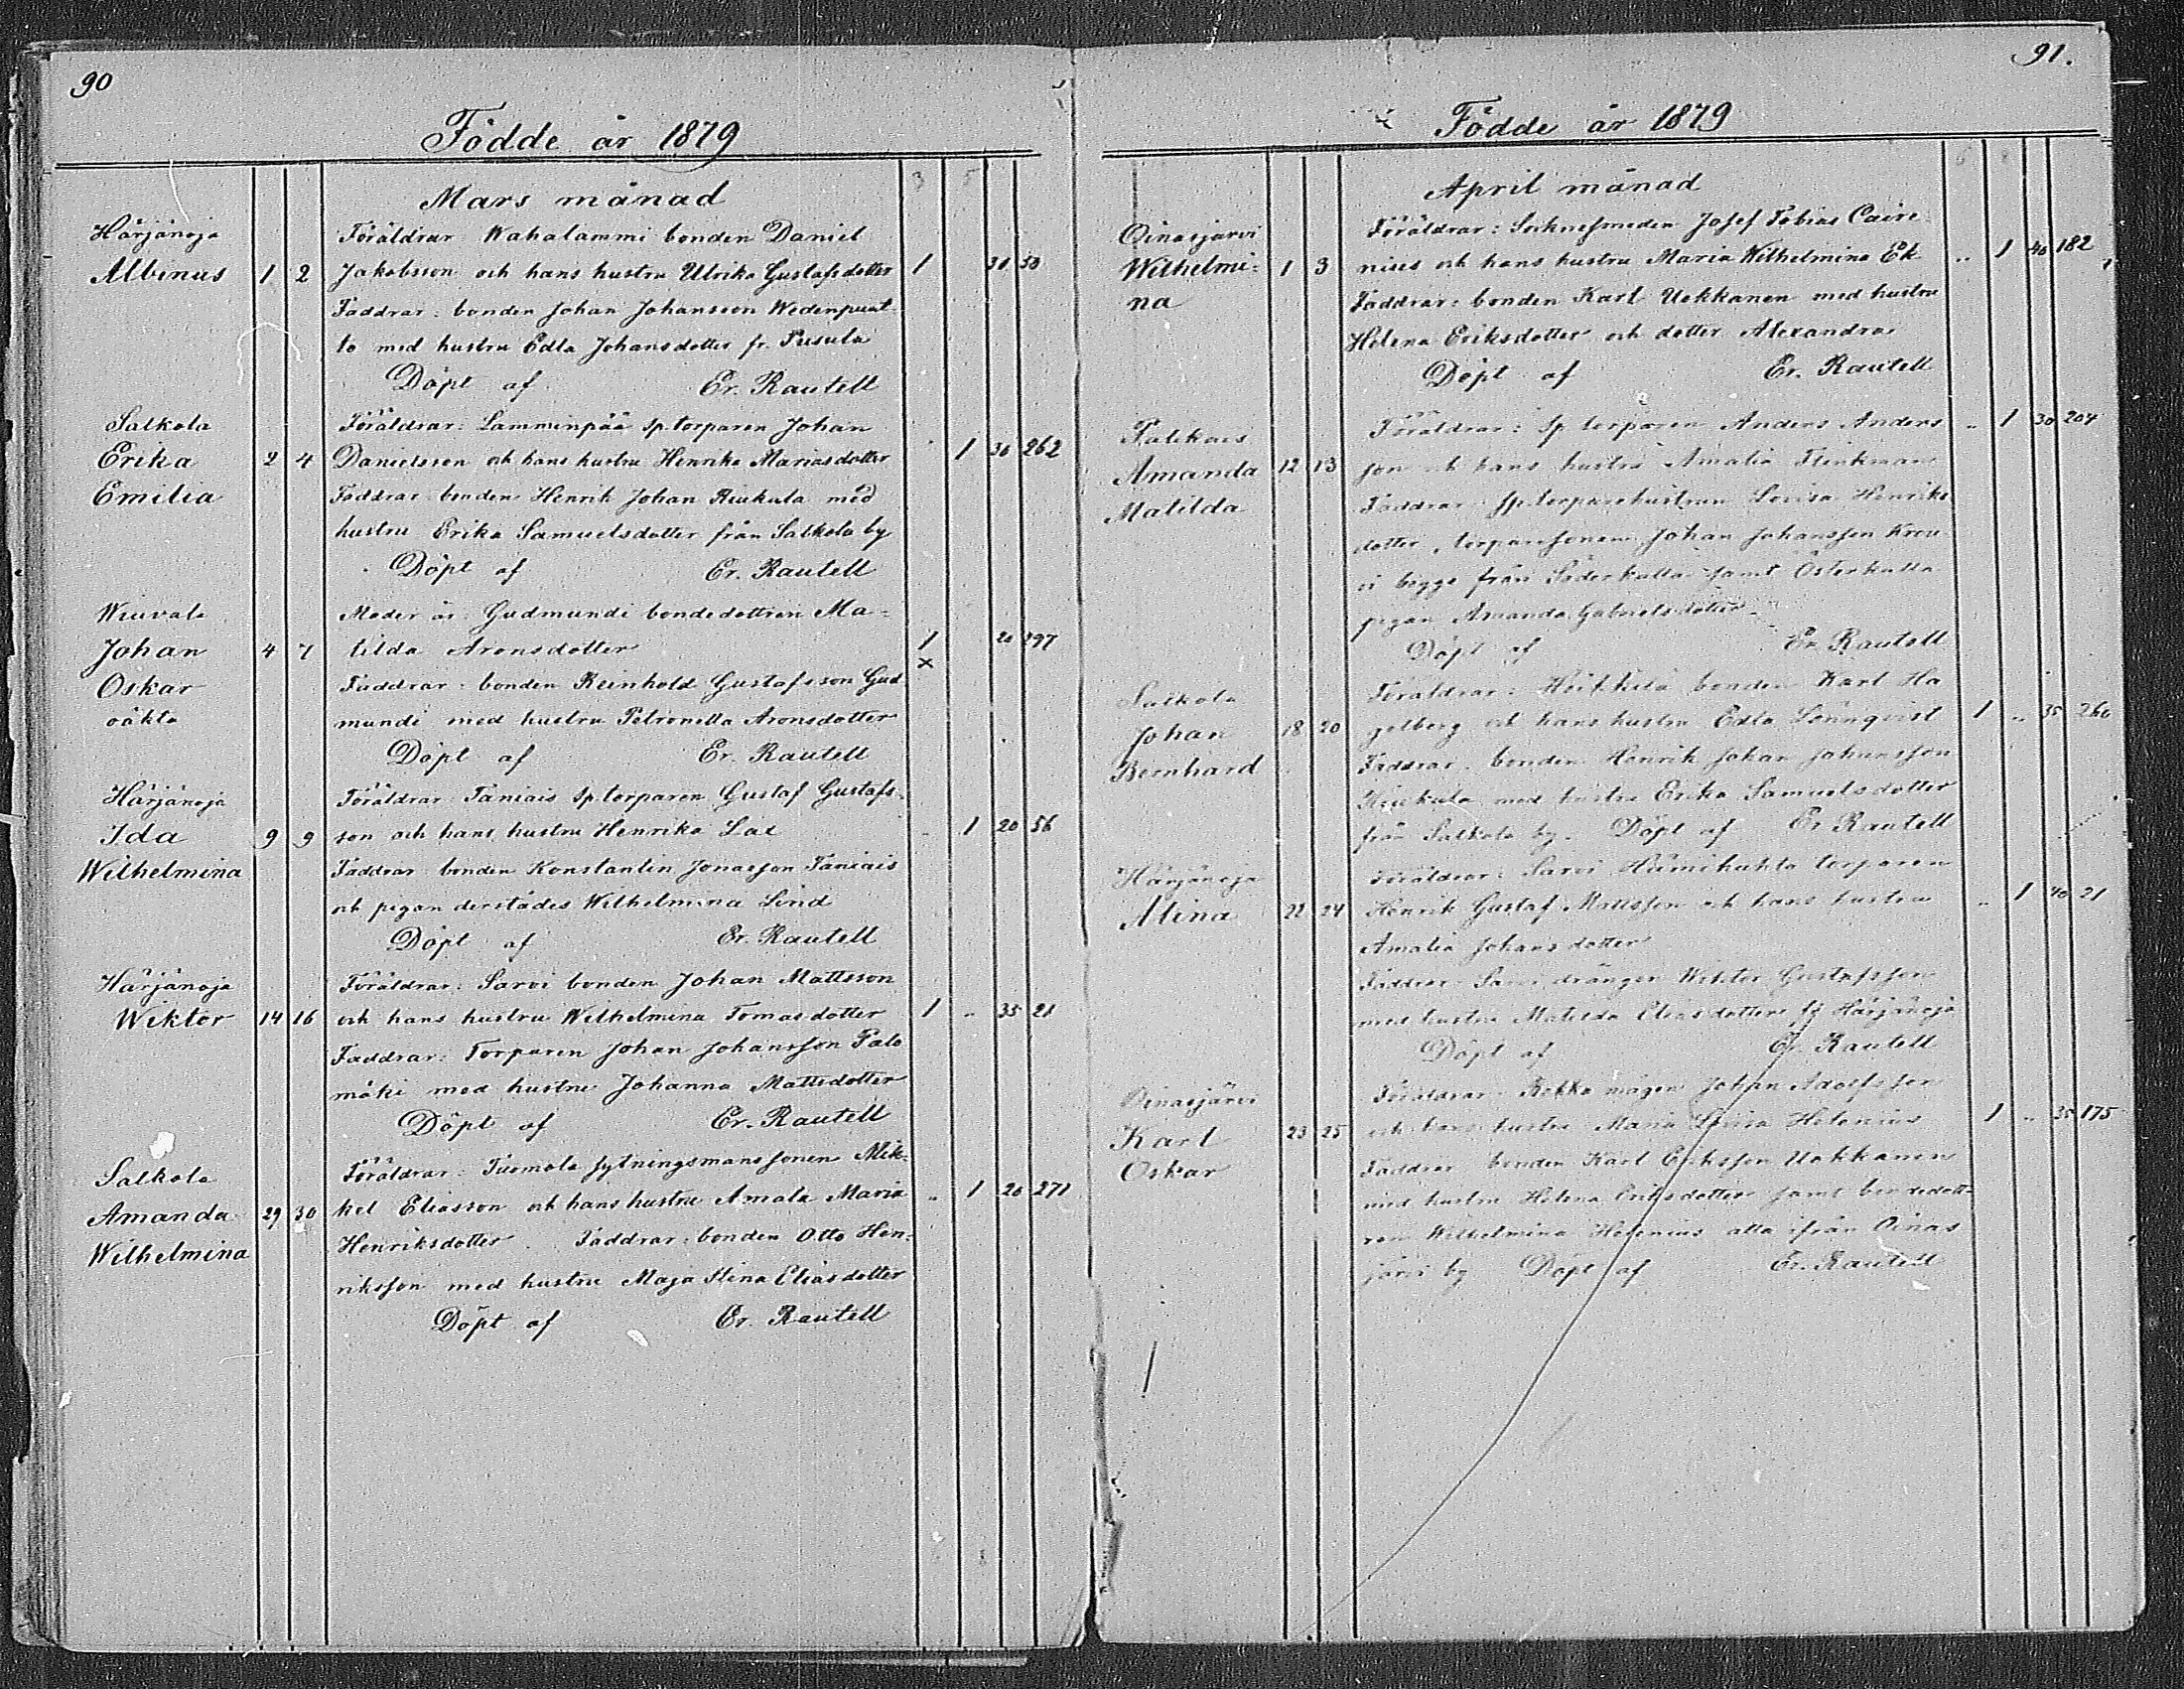 90
Födde år 1879
Mars månad
Härjänoja Föräldrar: Wahalammi bonden Daniel
Albinus 1 2 Jakobsson och hans hustru Ulrika Gustafsdotter 1 31 50
Faddrar: bonden Johan Johansson Wedenpuat
to med hustru Edla Johansdotter fr. Pusula
Döpt af Er. Rautell
Salkola Föräldrar: Lamminpää sp.torparen Johan
Erika 2 4 Danielsson och hans hustru Henrika Mariasdotter 1 36 262
Emilia Faddrar bonden Henrik Johan Riukula med
hustru Erika Samuelsdotter från Salkola by
Döpt af Er. Rautell
Wiuvala Moder är: Gudmundi bondedottren Ma-
Johan 4 7 tilda Aronsdotter 1 20 297
x
Oskar Faddrar: bonden Reinhold Gustafsson Gud
oäkta mundi med hustru Petronella Aronsdotter
Döpt af Er. Rautell
Härjänoja Föräldrar Taniais sp.torparen Gustaf Gustafs-
Ida 9 9 son och hans hustru Henrika 1 20 56
Wilhelmina Faddrar bonden Konstantin Jonasson Taniais
och pigan derstädes Wilhelmina Lind
Döpt af Er. Rautell
Härjänoja Föräldrar: Sarvi bonden Johan Mattsson
Wiktor 14 16 och hans hustru Wilhelmina Tomasdotter 1 .. 35 21
Faddrar: Torparen Johan Johansson Palo
mäki med hustru Johanna Mattsdotter
Döpt af Er. Rautell
Salkola Föräldrar: Tuomola sytningsmanssonen Mik-
Amanda 29 30 kel Eliasson och hans hustru Amala Maria .. 1 20 271
Wilhelmina Henriksdotter. Faddrar: bonden Otto Hen-
riksson med hustru Maja Stina Eliasdotter
Döpt af Er. Rautell
91.
Födde år 1879
April månad
Oinasjärvi Föräldrar: Socknesmeden Josef Tobias Caire
Wilhelmi- 1 3 nius och hans hustru Maria Wilhelmina Ek .. 1 40 182
na Faddrar: bonden Karl Uokkanen med hustru
Helena Eriksdotter och dotter Alexandra
Döpt af Er. Rautell
Föräldrar: Sp. torparen Anders Anders .. 1 30 204
Amanda 12 13 son och hans hustru Amalia Flinkman
Matilda Faddrar sp.torparehustrun Lovisa Henriks
dotter, torparesonen Johan Johansson
begge från Söderkulla samt Österkulla
pigan Amanda Gabrielsdotter
Döpt af Er. Rautell
Salkola Föräldrar: bonden Karl Ha
Johan 18 20 gelberg och hans hustru Edla Lönnqvist 1 .. 35 266
Bernhard Faddrar. bonden Henrik Johan Johansson
Riukula med hustru Erika Samuelsdotter
från Salkola by. Döpt af Er. Rautell
Härjänoja Föräldrar: Sarvi torparen
Alina 22 24 Henrik Gustaf Mattsson och hans hustru .. 1 40 21
Amalia Johansdotter
Faddrar Sarvi drängen Wiktor Gustafsson
med hustru Matilda Eliasdotter fr Härjänoja
Döpt af Er. Rautell
Oinasjärvi Föräldrar: mågen Johan Adolfsson
Karl 23 25 och hans hustru Maria Lovisa Helenius 1 .. 35 175
Oskar Faddrar bonden Karl Eriksson Uokkanen
med hustru Helena Eriksdotter samt bondedott-
ren Wilhelmina Helenius alla ifrån Oinas
järvi by Döpt af Er. Rautell